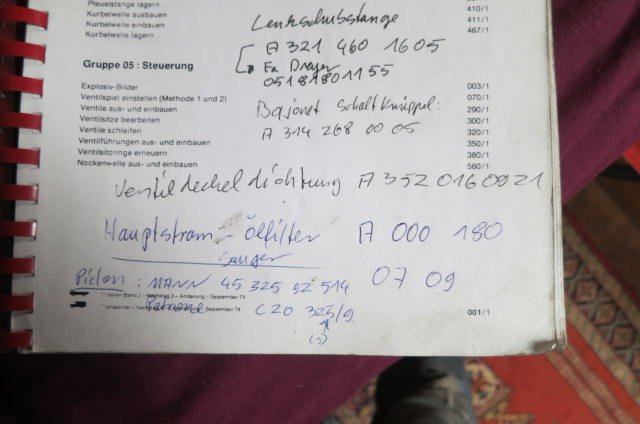 Pleuelstange lagern
Kurbelwelle ausbauen 410/1
Kurbelwelle einbauen 411/1
Kurbelwelle lagern 467/1
Lenkschubstange
A 321 460 1605
Fa Dreyer
05181801155
Gruppe 05 : Steuerung
Explosiv-Bilder 003/1
Ventilspiel einstellen (Methode 1 und 2) 070/1
Ventile aus- und einbauen 290/1
Ventilsitze bearbeiten 300/1
Ventile schleifen 320/1
Ventilführungen aus- und einbauen 350/1
Ventilsitzringe erneuern 380/1
Nockenwelle aus- und einbauen 560/1
Bajonet Schaltknüppel:
A 314 268 00 05
Ventildeckeldichtung A 352 016 0921
Hauptstrom - Ölfilter A 000 180
07 09
MANN 45 325 92 514
Band 2 - Nachtrag 3 - Änderung - September 79
Patrone C20 325/9
September 79
001/1